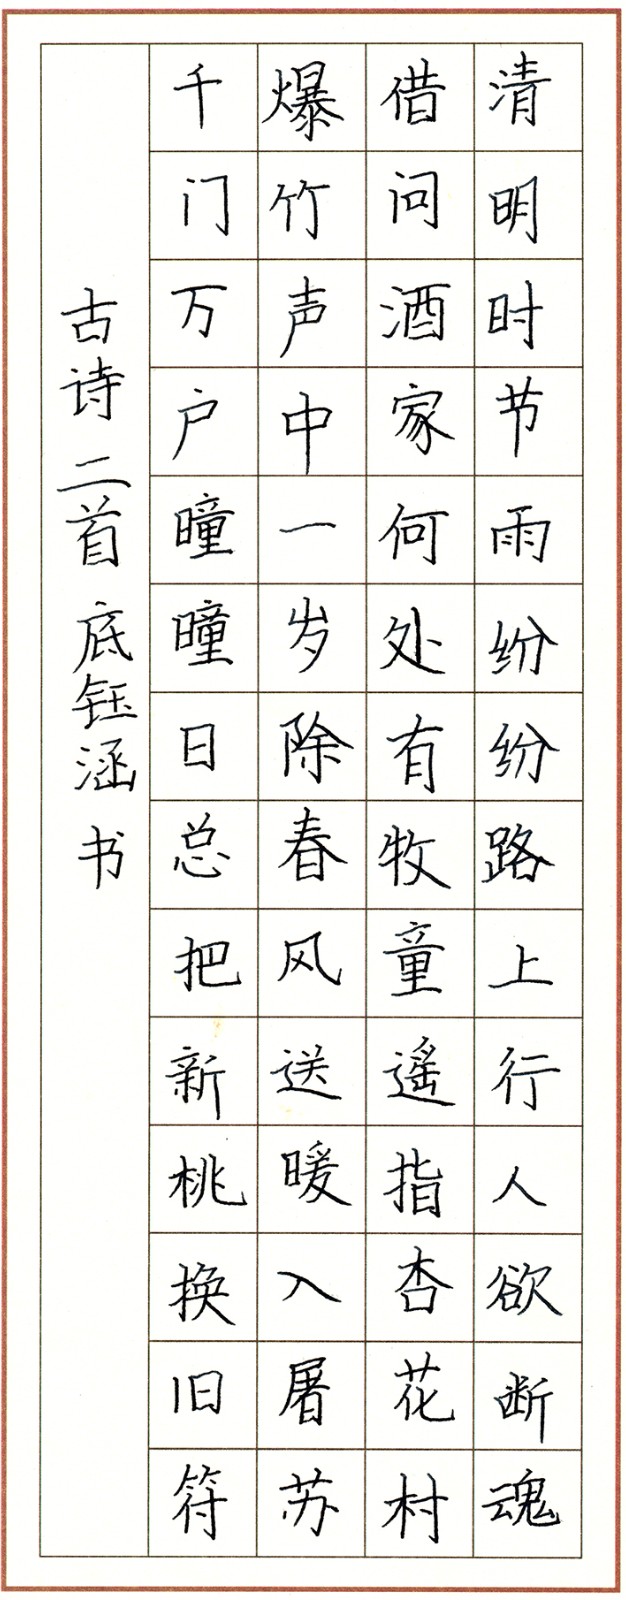 清明时节雨纷纷路上行人欲断魂
借问酒家何处有牧童遥指杏花村
爆竹声中一岁除春风送暖入屠苏
千门万户曈曈日总把新桃换旧符
古诗二首 底钰涵书